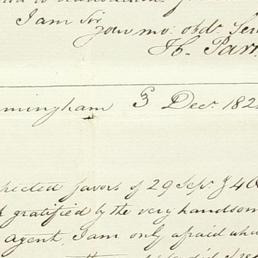 I am Sir
your mo: obdt. Ser
H. Par
mingham 3 Decr. 182
pected favors of 29 Sepr. & 40
gratified by the very handsom
agent, I am only afraid wh